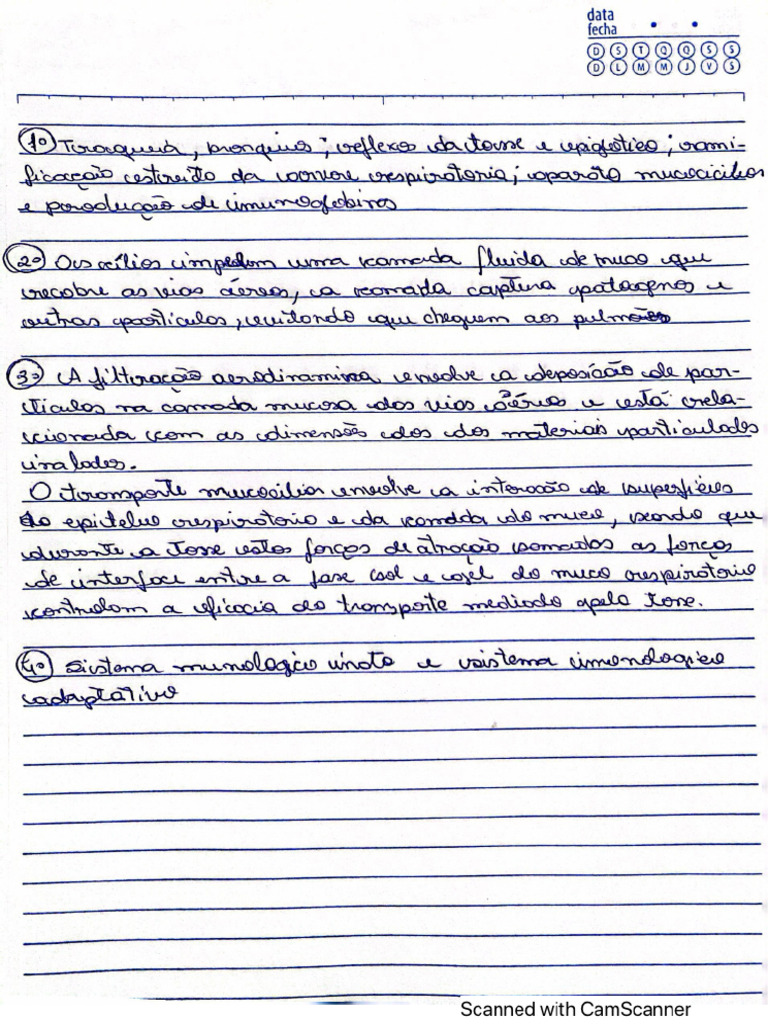 data
fecha
D S T Q Q S S
D L M M J V S
1º Traqueia, bronquios; reflexo da tosse e epiglotico; rami-
ficacação estreita da arvore respiratoria; aparato mucociciliar
e producação de imunoglobinas
2º Os cílios impelem uma camada fluida de muco que
recobre as vias aéreas, a camada captura patogenos e
outras particulas, evitando que cheguem aos pulmões
3º A filtração aerodinamica envolve a deposição de par-
ticulas na camada mucosa das vias aérias e está rela-
cionada com as dimensões dos dos materiais particulados
inalados.
O transporte mucociliar envolve a interação de superfícies
do epitelio respiratorio e da camada do muco, sendo que
durante a tosse estas forças de atração somados as forças
de interface entre a fase sol e gel do muco respiratorio
controlam a eficacia do transporte mediado pela tose.
4º Sistema munologico inato e sistema imonologico
adaptativo
Scanned with CamScanner